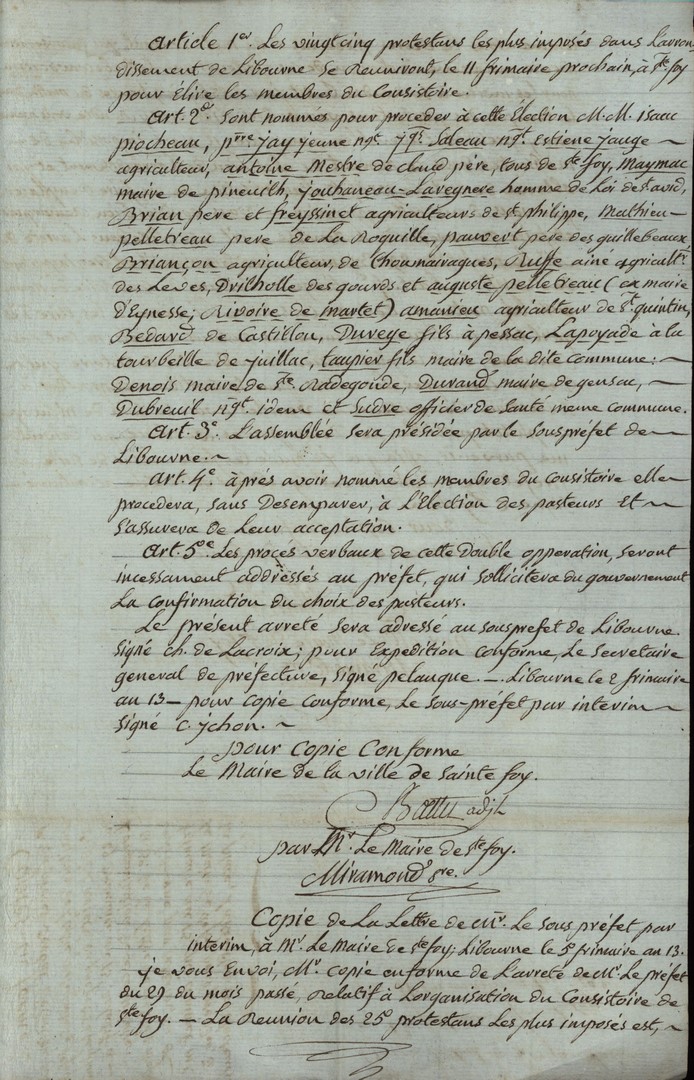 Article 1er. Les vingt cinq protestans les plus imposés dans L'arron
dissement de Libourne se Reuniront, le 11 frimaire prochain, à Ste foy
pour Élire les membres du Consistoire.
Art. 2e. Sont nommés pour proceder à cette Élection M.M. isaac
piocheau, pierre jay jeune ngt. jqs. Saleau ngt. Estiene jauge -
agriculteur, antoine Mestre de claud père, tous de Ste foy, Maymac
maire de pineuilh, jouhaneau-Lavegnere homme de Loi de St avid,
Brian père et freyssinet agriculteurs de St philippe, Mathieu -
pelletreau pere de La Roquille, pauvert père des guillebeaux,
Briançon agriculteur, de Thoumairagues, Russe ainé agricultr
des Leves, Drilholle des gourds et auguste pelletreau (ex maire
d'Eynesse; Rivoire de martet) amanieu agriculteur de St quintin,
Bedard de Castillon, Duvege fils à pessac, Lapoyade à la
tourbeille de juillac, taupier fils maire de la dite commune: ~
Denois maire de Ste Radegonde, Durand maire de gensac, ~
Dubreuil ngt idem et Sudre officier de santé meme commune.
Art. 3e. L'assemblée sera présidée par le souspréfet de ~
Libourne. ~
art. 4e. à prés avoir nommé les membres du consistoire elle
procedera, sans Desemparer, à L'Election des pasteurs Et ~
s'assurera de Leur acceptation.
Art. 5e. Les procés verbaux de cette Double opperation, seront
incessament addréssés au préfet, qui sollicitera du gouvernement
La confirmation du choix des pasteurs.
Le présent arreté sera adressé au sousprefet de Libourne.
signé ch. de Lacroix; pour Expedition conforme, Le secretaire
general de préfecture, signé pelauque. - Libourne le 2 frimaire
an 13 - pour copie conforme, Le sous-préfet par interim ~
signé C. ychon. ~
pour Copie Conforme
Le Maire de la ville de Sainte foy.
Battu adjt
par Mr. Le Maire de Ste foy.
Miramond sre.
Copie de La Lettre de Mr. Le sous préfet par
interim, à Mr. Le Maire de Ste foy; Libourne le 5e frimaire an 13.
je vous Envoi, Mr. copie conforme de L'arreté de Mr. Le préfet
du 29 du mois passé, Relatif à L'organisation du Consistoire de
Ste foy. - La Reunion des 25e protestans Les plus imposés est, ~